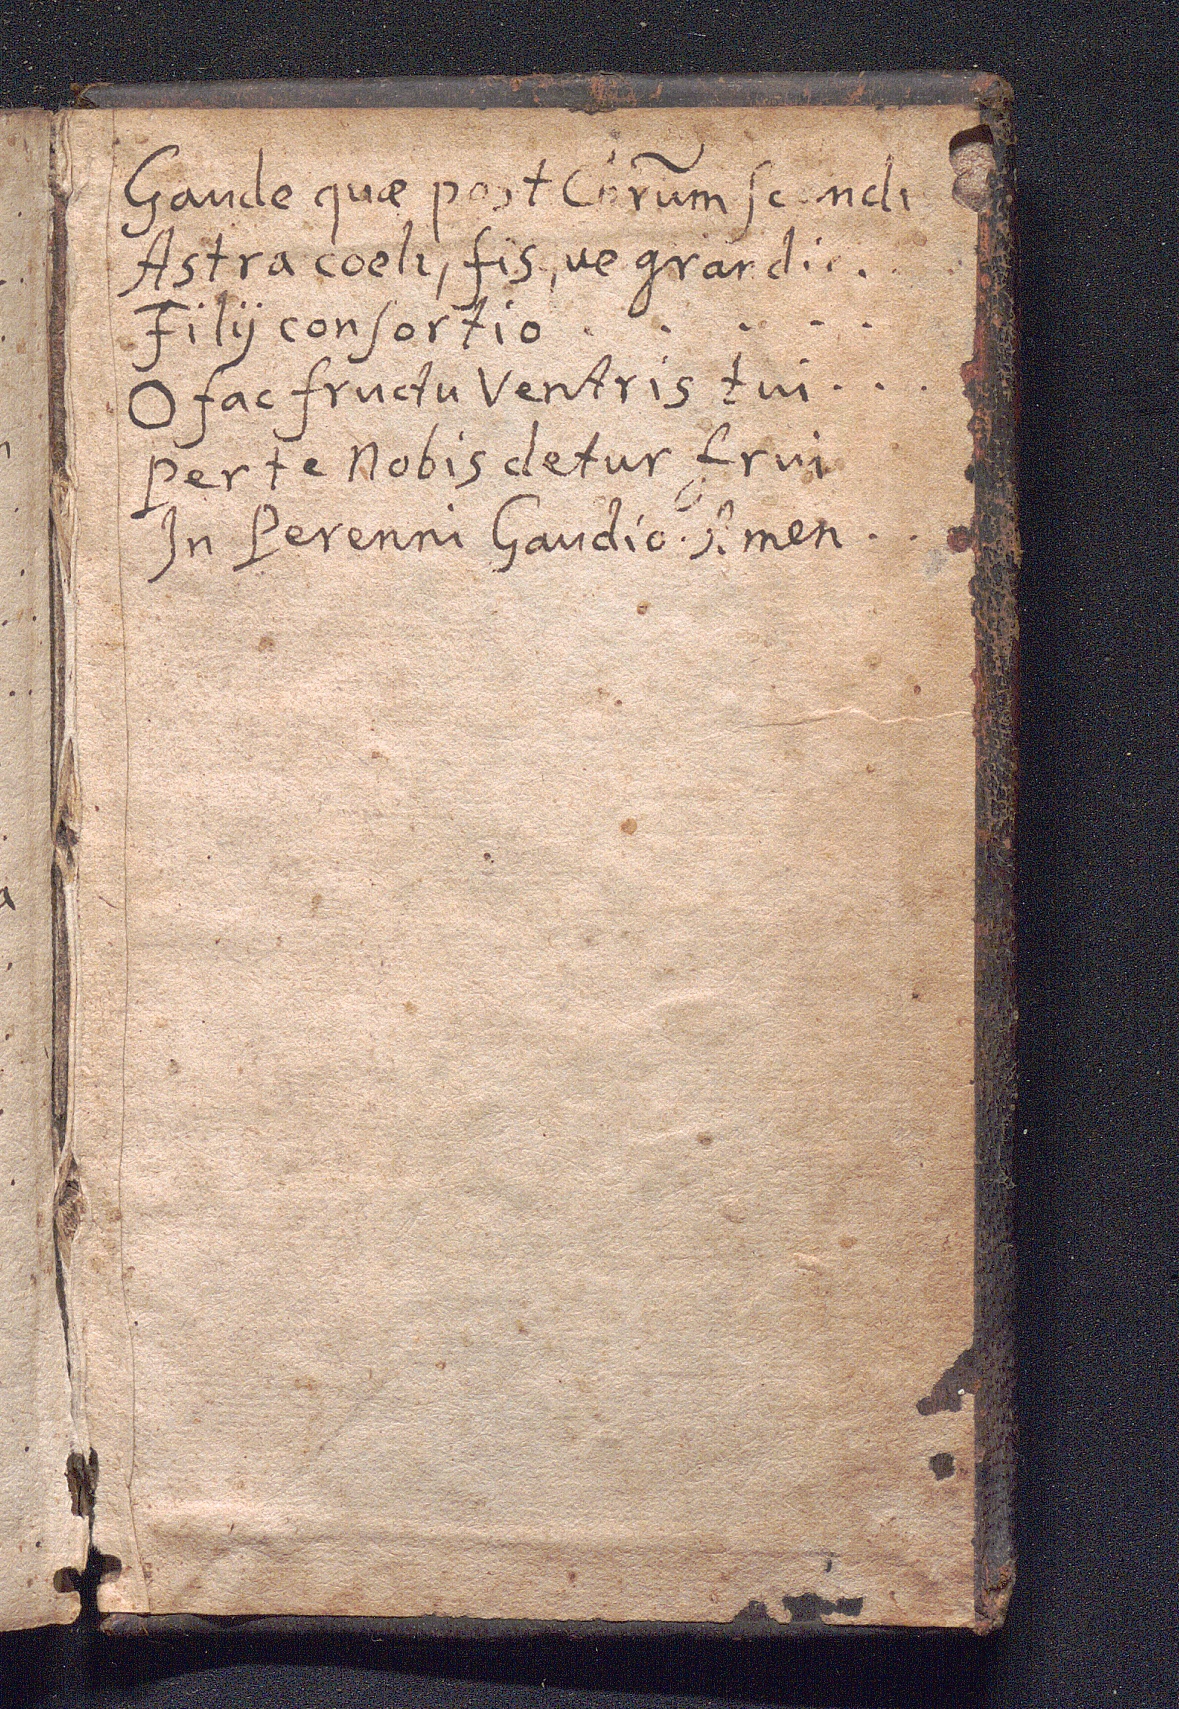 Gaude quæ post Chr̃um scandi
Astra coeli, fis, ue grandi.
Filij consortio . . . . .
O fac fructu Ventris tui . . .
Per te Nobis detur frui
In Perenni Gaudio. Amen . .